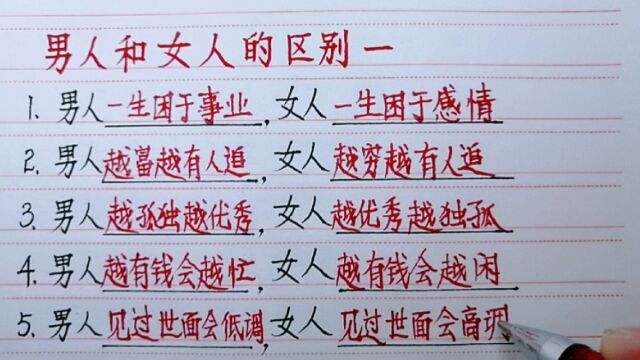 男人和女人的区别一
1. 男人一生困于事业,女人一生困于感情
2. 男人越富越有人追,女人越穷越有人追
3. 男人越孤独越优秀,女人越优秀越独孤
4. 男人越有钱会越忙,女人越有钱会越闲
5. 男人见过世面会低调,女人见过世面会高调